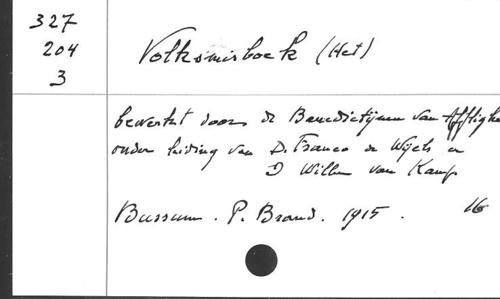 327
204
3
Volksmisboek (Het)
bewerkt door de Benedictijnen van Afflighe
onder leiding van D. Franco de Wijels en
D Willem van Kamp
Bussum. P. Brand. 1915. 16